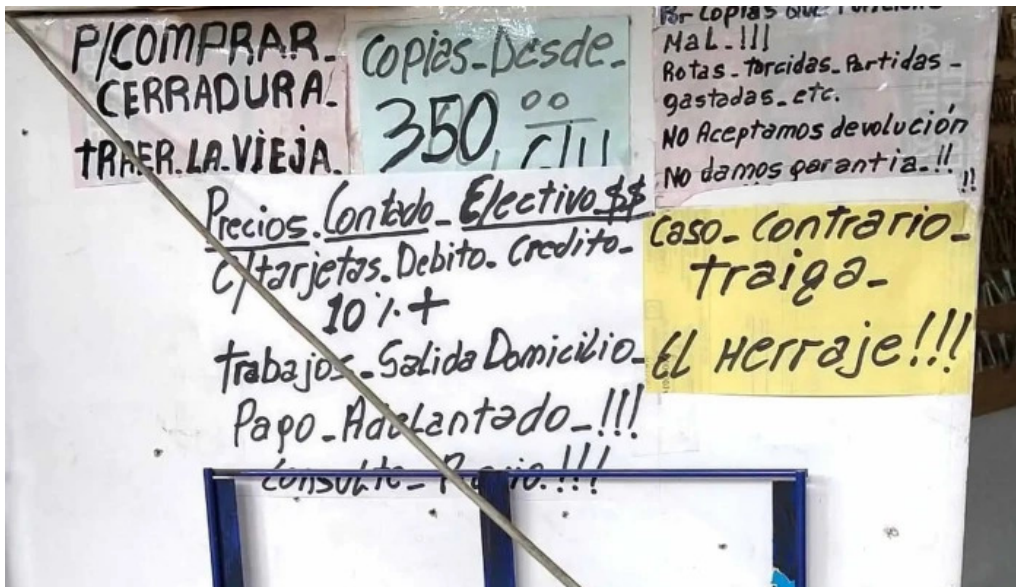 P/COMPRAR_
CERRADURA_
TRAER.LA.VIEJA.
Copias_Desde_
350,00
C/U
Por Copias que funcione
Mal_!!!
Rotas_torcidas_Partidas_
gastadas_etc.
NO Aceptamos devolución
No damos garantia_!!
!!
Precios.Contado_Efectivo $$
c/tarjetas.Debito_Credito_
10%+
trabajos_Salida Domicilio_
Pago_Adelantado_!!!
Consulte_Precio.!!!
Caso_Contrario_
traiga_
El Herraje!!!